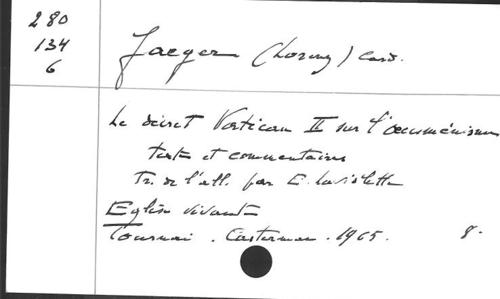 280
134
6
Jaeger (Lorenz) Card.
Le décret Vatican II sur l'oecuménisme
texte et commentaires
Tr. de l'all. par E. Laviolette
Eglise vivante
Tournai. Casterman. 1965. 8°